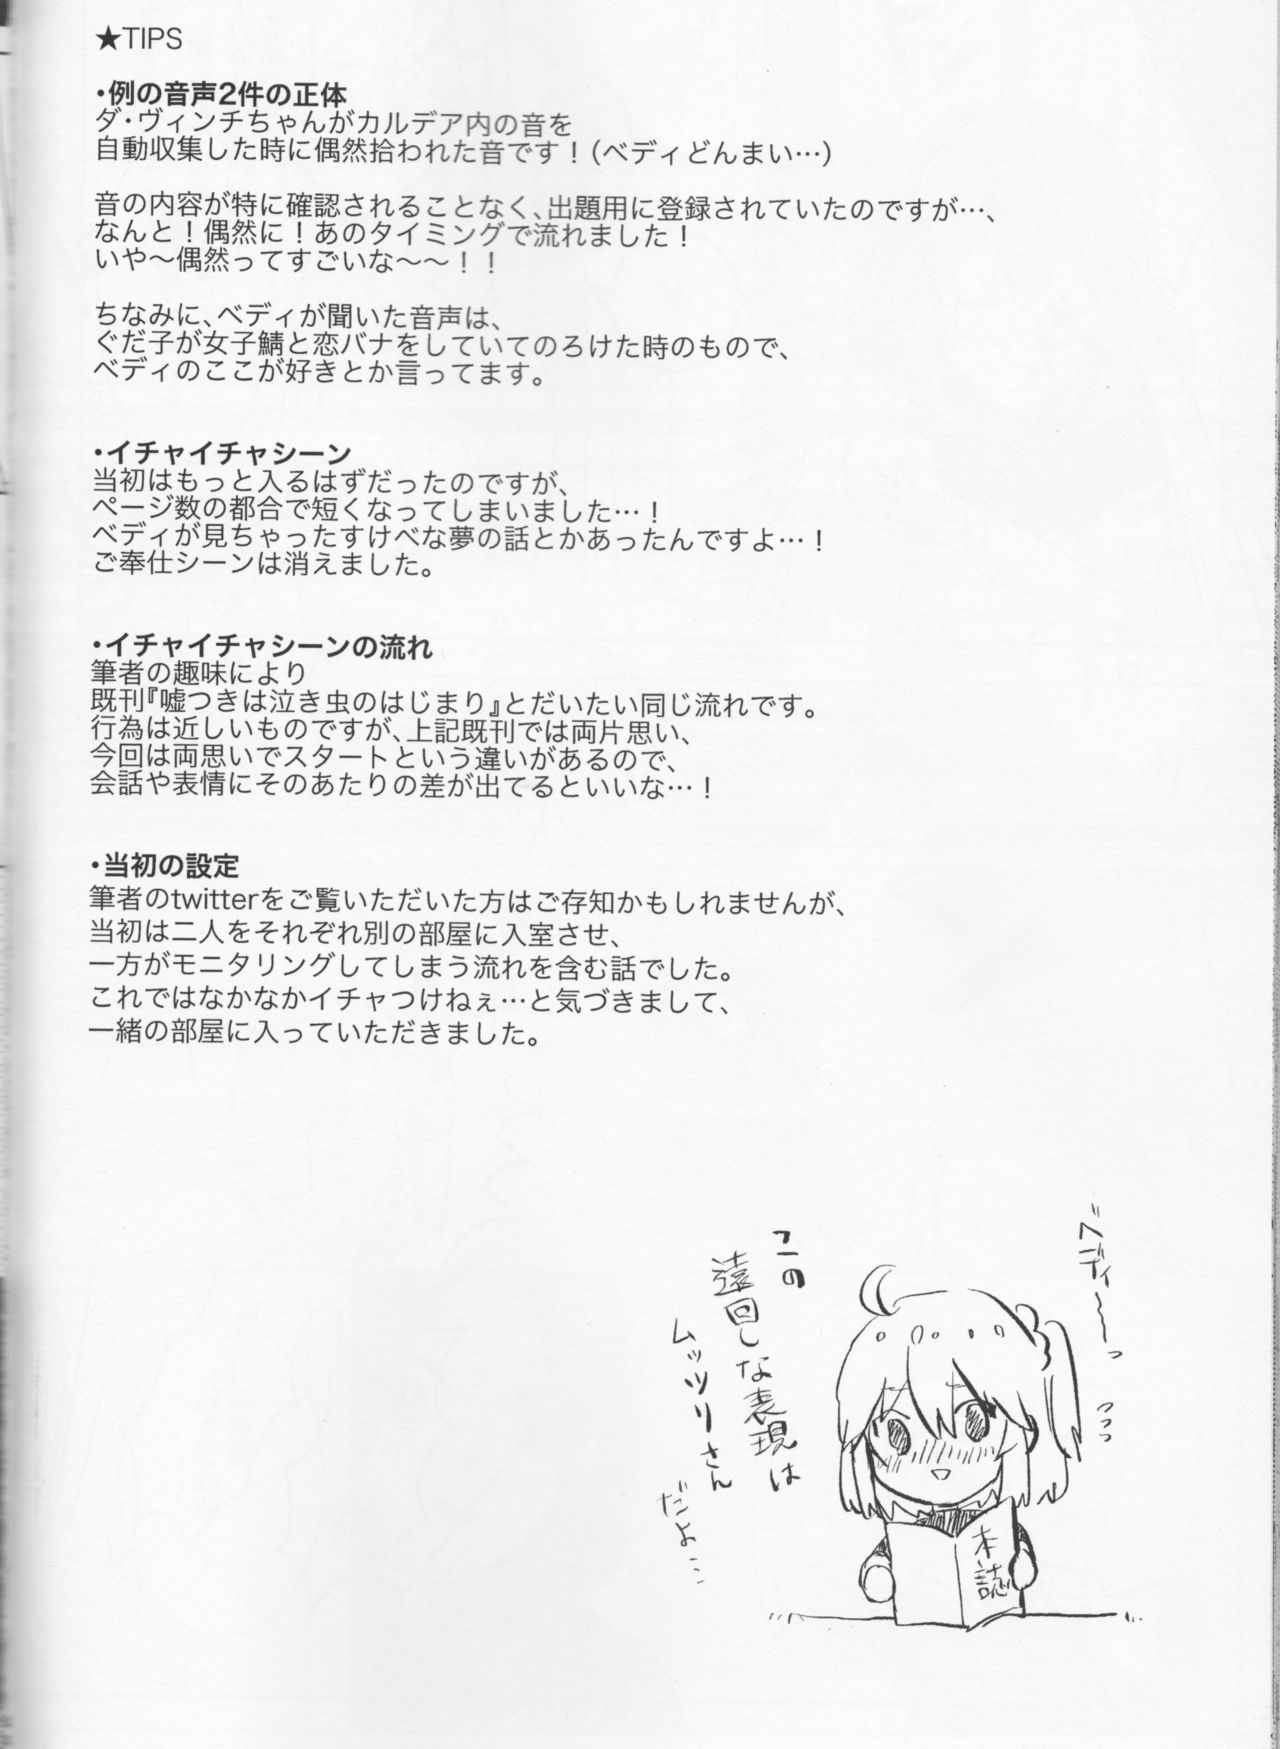 ★TIPS
・例の音声2件の正体
ダ・ヴィンチちゃんがカルデア内の音を
自動収集した時に偶然拾われた音です！（ベディどんまい…）
音の内容が特に確認されることなく、出題用に登録されていたのですが…、
なんと！偶然に！あのタイミングで流れました！
いや～偶然ってすごいな～～！！
ちなみに、ベディが聞いた音声は、
ぐだ子が女子鯖と恋バナをしていてのろけた時のもので、
ベディのここが好きとか言ってます。
・イチャイチャシーン
当初はもっと入るはずだったのですが、
ページ数の都合で短くなってしまいました…！
ベディが見ちゃったすけべな夢の話とかあったんですよ…！
ご奉仕シーンは消えました。
・イチャイチャシーンの流れ
筆者の趣味により
既刊『嘘つきは泣き虫のはじまり』とだいたい同じ流れです。
行為は近しいものですが、上記既刊では両片思い、
今回は両思いでスタートという違いがあるので、
会話や表情にそのあたりの差が出てるといいな…！
・当初の設定
筆者のtwitterをご覧いただいた方はご存知かもしれませんが、
当初は二人をそれぞれ別の部屋に入室させ、
一方がモニタリングしてしまう流れを含む話でした。
これではなかなかイチャつけねぇ…と気づきまして、
一緒の部屋に入っていただきました。
ベディ～～っ
この
遠回しな表現は
ムッツリさん
だよ…
本誌